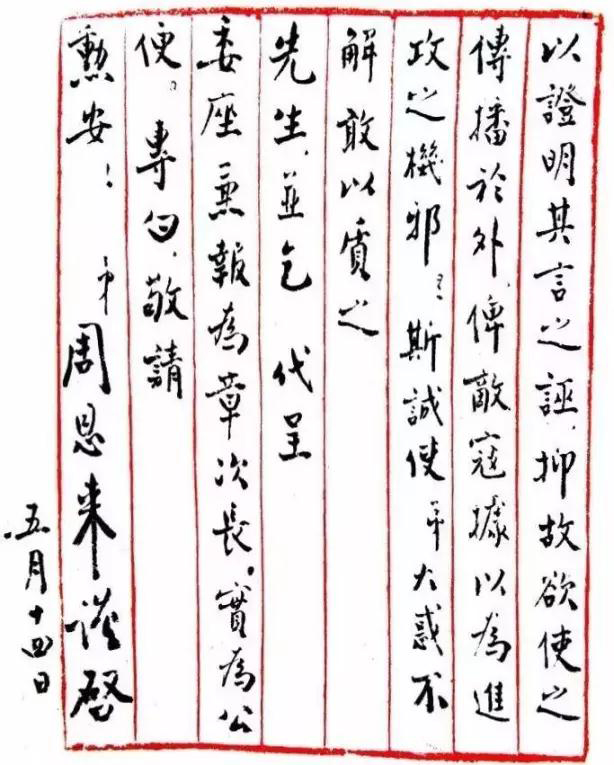 以證明其言之誣,抑故欲使之
傳播於外,俾敵寇據以為進
攻之機邪?!斯誠使弟大惑不
解敢以質之
先生,並乞 代呈
委座兼報為章次長,實為公
便。專白,敬請
勳安! 弟周恩來謹啓
五月十四日